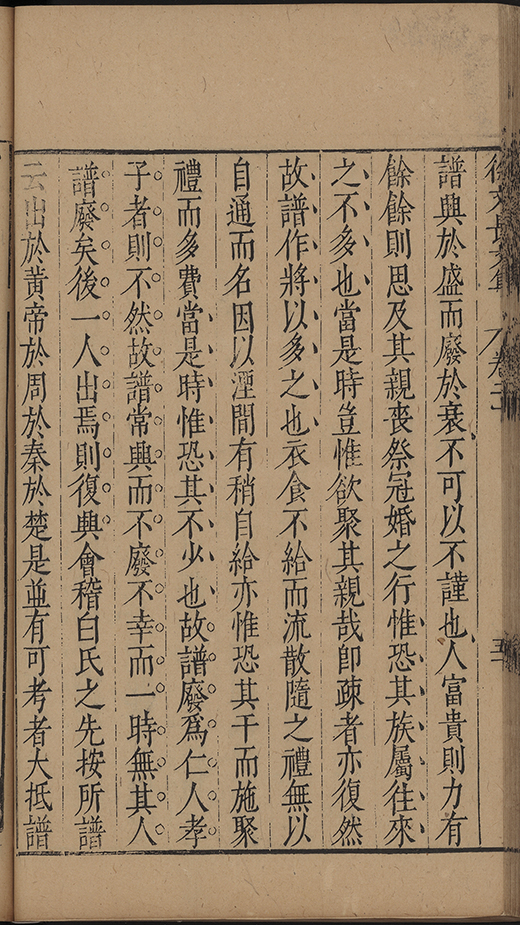 徐文長文集 卷二十 五
譜興於盛而廢於衰不可以不謹也人富貴則力有
餘餘則思及其親喪祭冠婚之行惟恐其族屬往來
之不多也當是時豈惟欲聚其親哉卽疎者亦復然
故譜作將以多之也衣食不給而流散隨之禮無以
自通而名因以湮間有稍自給亦惟恐其干而施聚
禮而多費當是時惟恐其不少也故譜廢爲仁人孝
子者則不然故譜常興而不廢不幸而一時無其人
譜廢矣後一人出焉則復興會稽白氏之先按所譜
云出於黃帝於周於秦於楚是並有可考者大抵譜